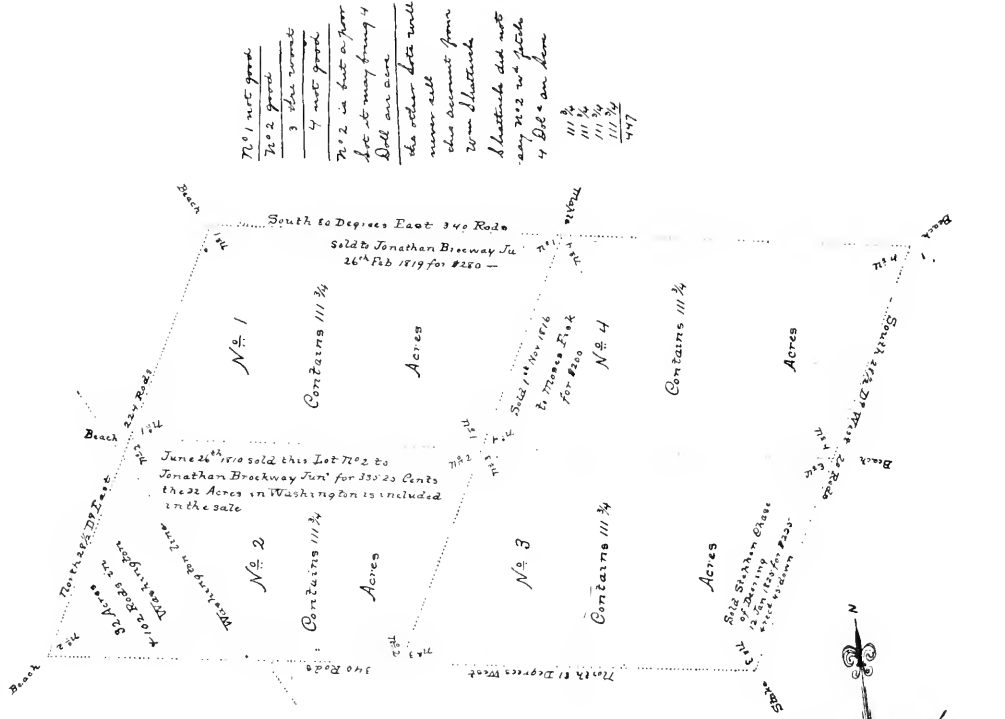 No 1 not good
No 2 good
3 the worst
4 not good
No 2 is but a poor
lot it may bring 4
Doll an acre
the other lots will
never sell
this account from
Wm Shattuck
Shattuck did not
say No 2 wd fetch
4 Dols an acre
111 3/4
111 3/4
111 3/4
111 3/4
447
Beach
South 80 Degrees East 340 Rods
Maple
Beach
No 1
Sold to Jonathan Brocway Ju
26th Feb 1819 for $280 —
No 1
No 4
No 4
No 1
Contains 111 3/4
Acres
Sold 1st Nov 1816
to Moses Fisk
for $200
No 4
Contains 111 3/4
Acres
South 28 1/2 Dg West
Rods
224 Rods
Beach
No 1
No 2
No 1
No 4
No 2
No 3
No 4
No 3
Beach
North 28 1/2 Dg East
June 26th 1810 sold this Lot No 2 to
Jonathan Brockway Junr for 335 23 Cents
the 32 Acres in Washington is included
in the sale
32 Acres
& 102 Rods in
Washington
Washington Line
No 2
Contains 111 3/4
Acres
No 3
Contains 111 3/4
Acres
Sold Stephen Chase
of Deering
12 Jan 1825 for $225
down
No 2
No 2
No 3
No 3
Beach
340 Rods
North 81 Degrees West
Stake
N